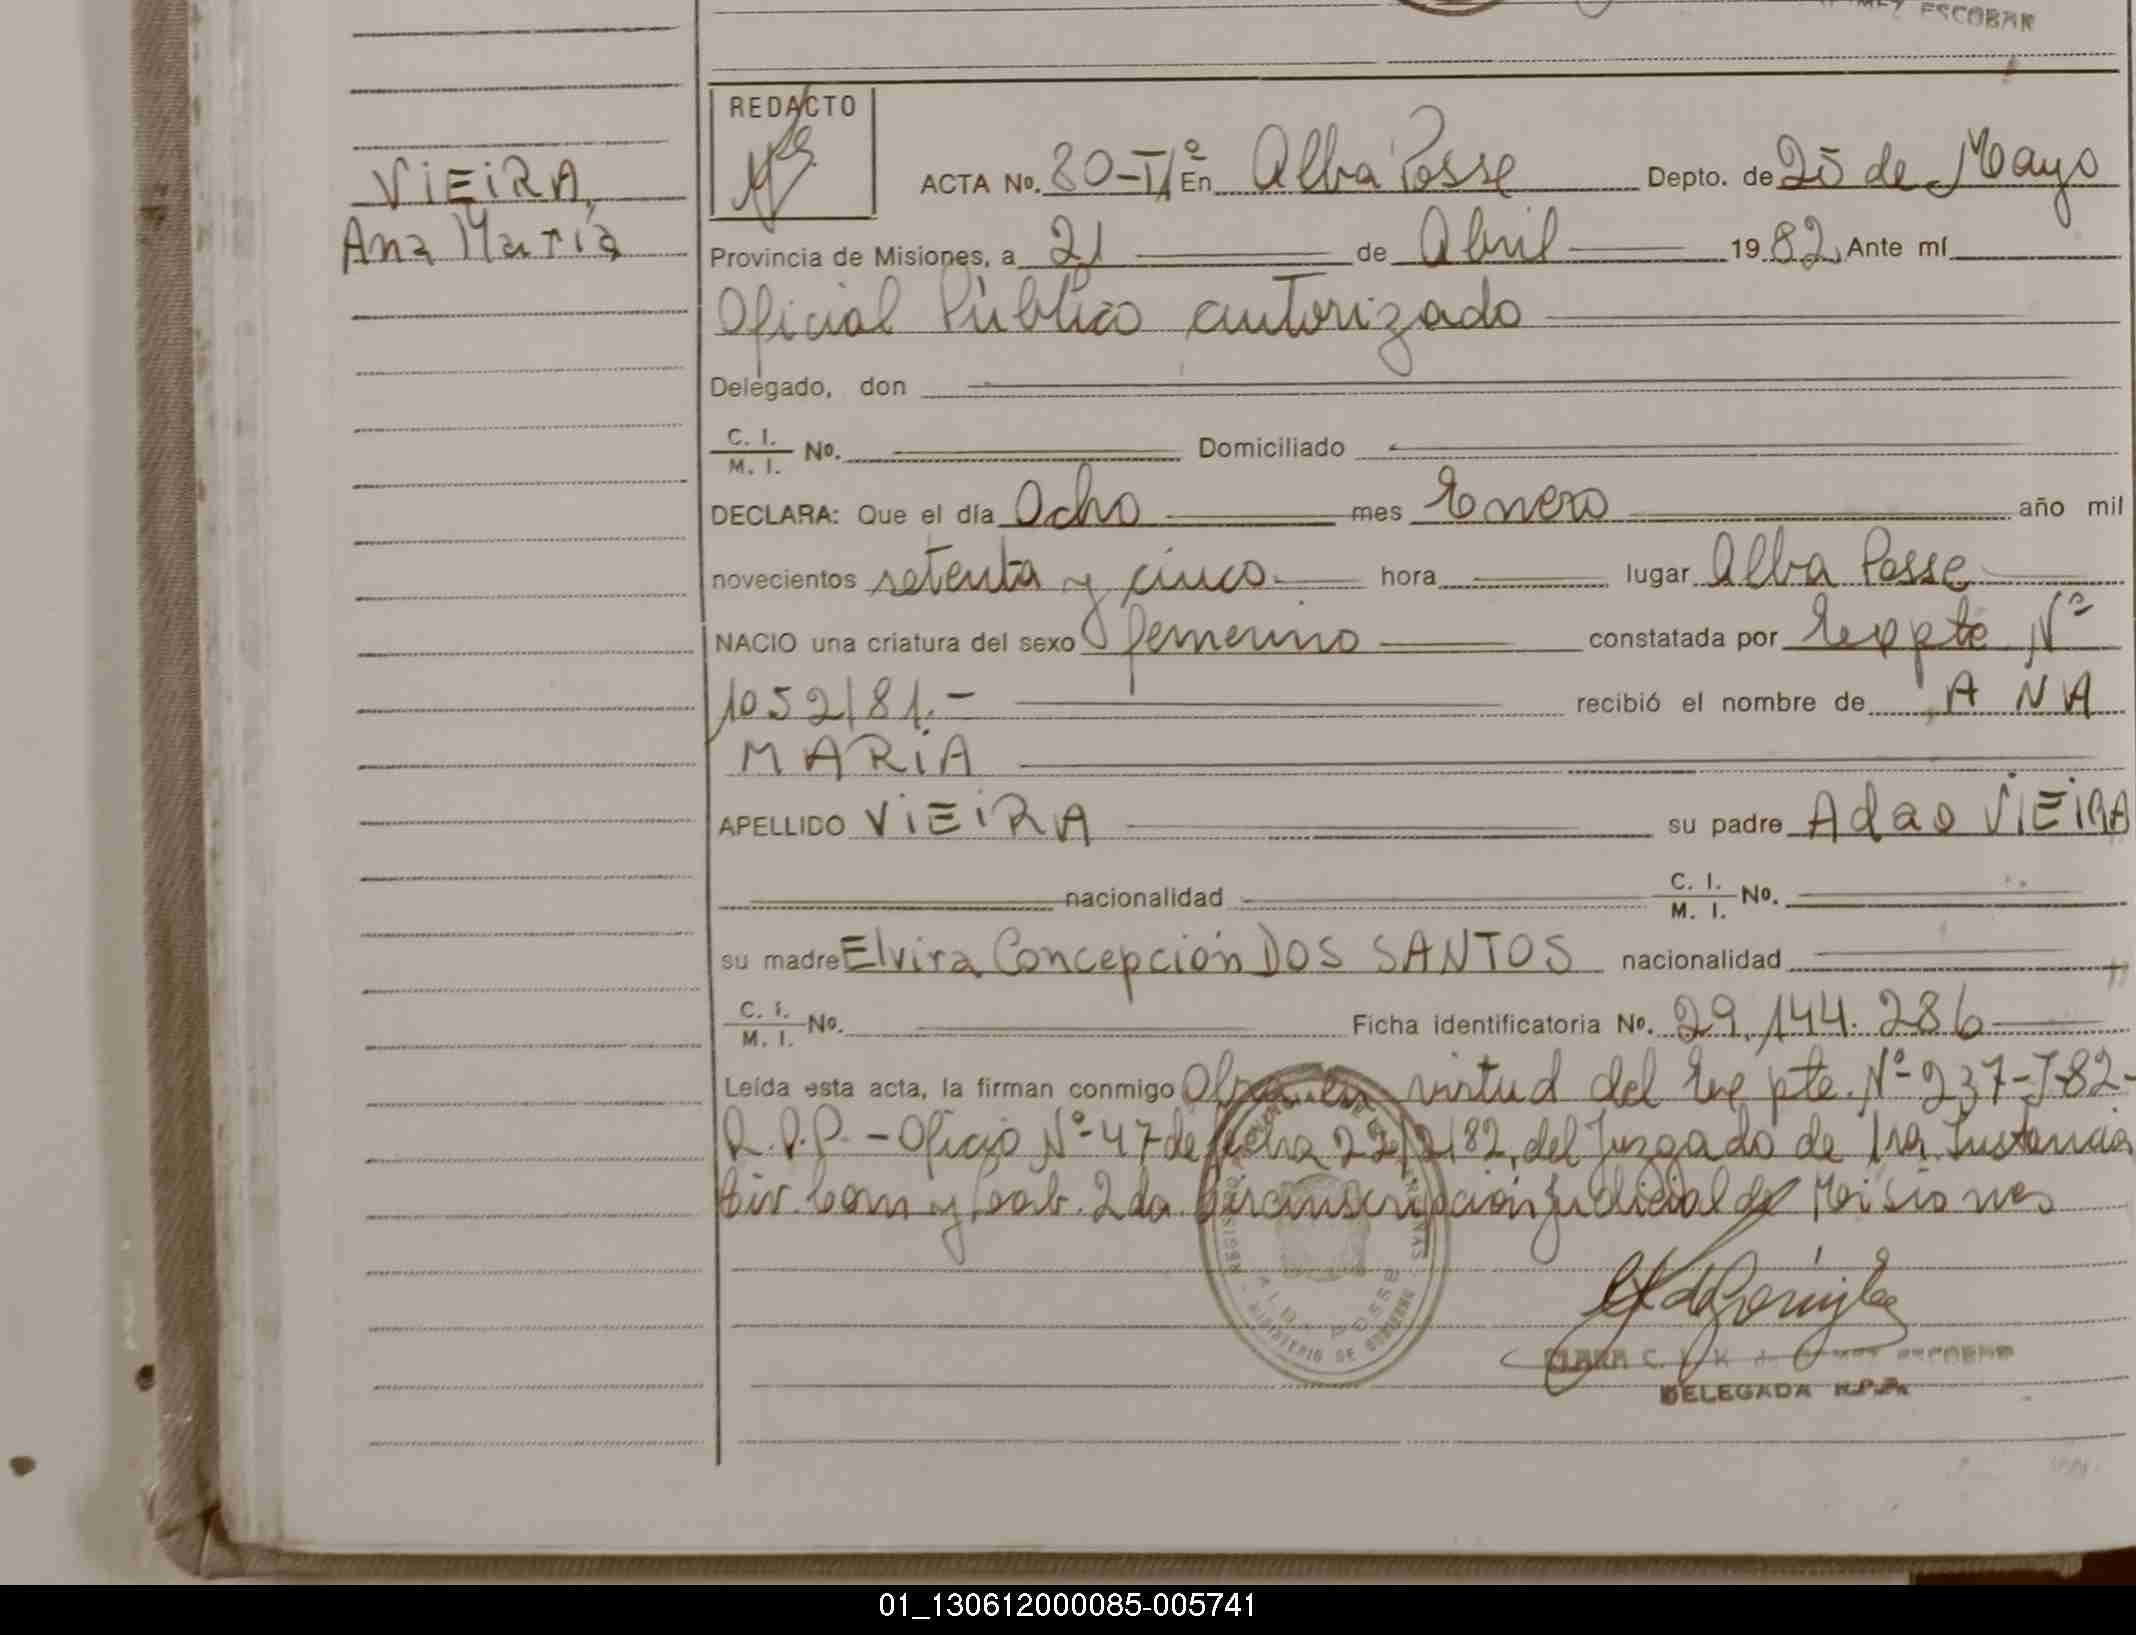 ESCOBAR
REDACTO
VIEIRA,
Ana María
ACTA No. 80-T/1º En Alba Posse Depto. de 25 de Mayo
Provincia de Misiones, a 21 de Abril 1982, Ante mí
Oficial Público autorizado
Delegado, don
C. I. / M. I. No. Domiciliado
DECLARA: Que el día Ocho mes Enero año mil
novecientos setenta y cinco.- hora lugar Alba Posse
NACIO una criatura del sexo femenino constatada por Expte Nº
1052/81.- recibió el nombre de ANA
MARÍA
APELLIDO VIEIRA su padre Adao VIEIRA
nacionalidad C. I. / M. I. No.
su madre Elvira Concepción DOS SANTOS nacionalidad
C. I. / M. I. No. Ficha identificatoria No. 29.144.286
Leída esta acta, la firman conmigo en virtud del Expte. Nº 237-J-82-
R.P.P. - Oficio Nº 47 de fecha 22/2/82, del Juzgado de 1ra. Instancia
Civ. Com y Lab. 2da Circunscripción Judicial de Misiones
ALBA POSSE
MINISTERIO DE GOBIERNO
DELEGADA R.P.P.
01_130612000085-005741